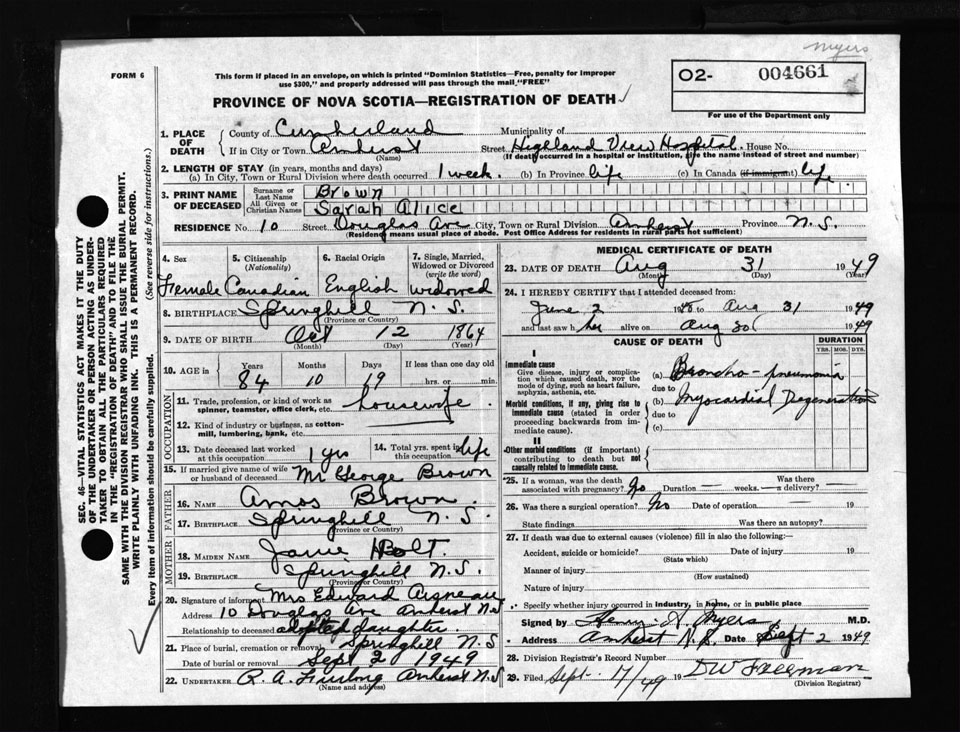 Myers
FORM 6
This form if placed in an envelope, on which is printed "Dominion Statistics—Free, penalty for improper
use $300," and properly addressed will pass through the mail "FREE"
O2- 004661
For use of the Department only
PROVINCE OF NOVA SCOTIA—REGISTRATION OF DEATH
1. PLACE OF DEATH
County of Cumberland Municipality of
If in City or Town Amherst Street Highland View Hospital House No.
(Name) (If death occurred in a hospital or institution, give the name instead of street and number)
2. LENGTH OF STAY (in years, months and days)
(a) In City, Town or Rural Division where death occurred 1 week. (b) In Province life (c) In Canada (if immigrant) life
3. PRINT NAME OF DECEASED
Surname or Last Name Brown
All Given or Christian Names Sarah Alice
RESIDENCE No. 10 Street Douglas Ave City, Town or Rural Division Amherst Province N.S.
(Residence means usual place of abode. Post Office Address for residents in rural parts not sufficient)
4. Sex Female
5. Citizenship (Nationality) Canadian
6. Racial Origin English
7. Single, Married, Widowed or Divorced (write the word) widowed
8. BIRTHPLACE Springhill N.S.
(Province or Country)
9. DATE OF BIRTH Oct 12 1864
(Month) (Day) (Year)
10. AGE in Years Months Days If less than one day old
84 10 19 hrs. or min.
OCCUPATION
11. Trade, profession, or kind of work as spinner, teamster, office clerk, etc. housewife
12. Kind of industry or business, as cotton-mill, lumbering, bank, etc.
13. Date deceased last worked at this occupation 1 yrs
14. Total yrs. spent in this occupation life
15. If married give name of wife or husband of deceased Mr George Brown
FATHER
16. NAME Amos Brown
17. BIRTHPLACE Springhill N.S.
(Province or Country)
MOTHER
18. MAIDEN NAME Jane Holt.
19. BIRTHPLACE Springhill N.S.
(Province or Country)
20. Signature of informant Mrs Edward
Address 10 Douglas Ave Amherst N.S
Relationship to deceased adopted daughter
21. Place of burial, cremation or removal Springhill N.S
Date of burial or removal Sept 2 1949
22. UNDERTAKER R. A. Furlong Amherst N.S
(Name and address)
MEDICAL CERTIFICATE OF DEATH
23. DATE OF DEATH Aug 31 1949
(Month) (Day) (Year)
24. I HEREBY CERTIFY that I attended deceased from:
June 2 to Aug 31 1949
and last saw her alive on Aug 30 1949
CAUSE OF DEATH
DURATION
YRS. MOS. DYS.
I
Immediate cause
Give disease, injury or complication which caused death, NOT the mode of dying, such as heart failure, asphyxia, asthenia, etc.
(a) Broncho-pneumonia
due to
Morbid conditions, if any, giving rise to immediate cause (stated in order proceeding backwards from immediate cause).
(b) Myocardial Degeneration
due to
(c)
II
Other morbid conditions (if important) contributing to death but not causally related to immediate cause.
*25. If a woman, was the death associated with pregnancy? No Duration — weeks. Was there a delivery? —
26. Was there a surgical operation? No Date of operation 19
State findings Was there an autopsy?
27. If death was due to external causes (violence) fill in also the following:
Accident, suicide or homicide? Date of injury 19
(State which)
Manner of injury
(How sustained)
Nature of injury
Specify whether injury occurred in industry, in home, or in public place
Signed by Henry Myers M.D.
Address Amherst N.S. Date Sept 2 1949
28. Division Registrar's Record Number
29. Filed Sept. 17/49 19 DW Freeman
(Division Registrar)
SEC. 46—VITAL STATISTICS ACT MAKES IT THE DUTY
OF THE UNDERTAKER OR PERSON ACTING AS UNDERTAKER
TO OBTAIN ALL THE PARTICULARS REQUIRED
IN THE "REGISTRATION OF DEATH" AND TO FILE THE
SAME WITH THE DIVISION REGISTRAR WHO SHALL ISSUE THE BURIAL PERMIT.
WRITE PLAINLY WITH UNFADING INK. THIS IS A PERMANENT RECORD.
Every item of information should be carefully supplied. (See reverse side for instructions.)